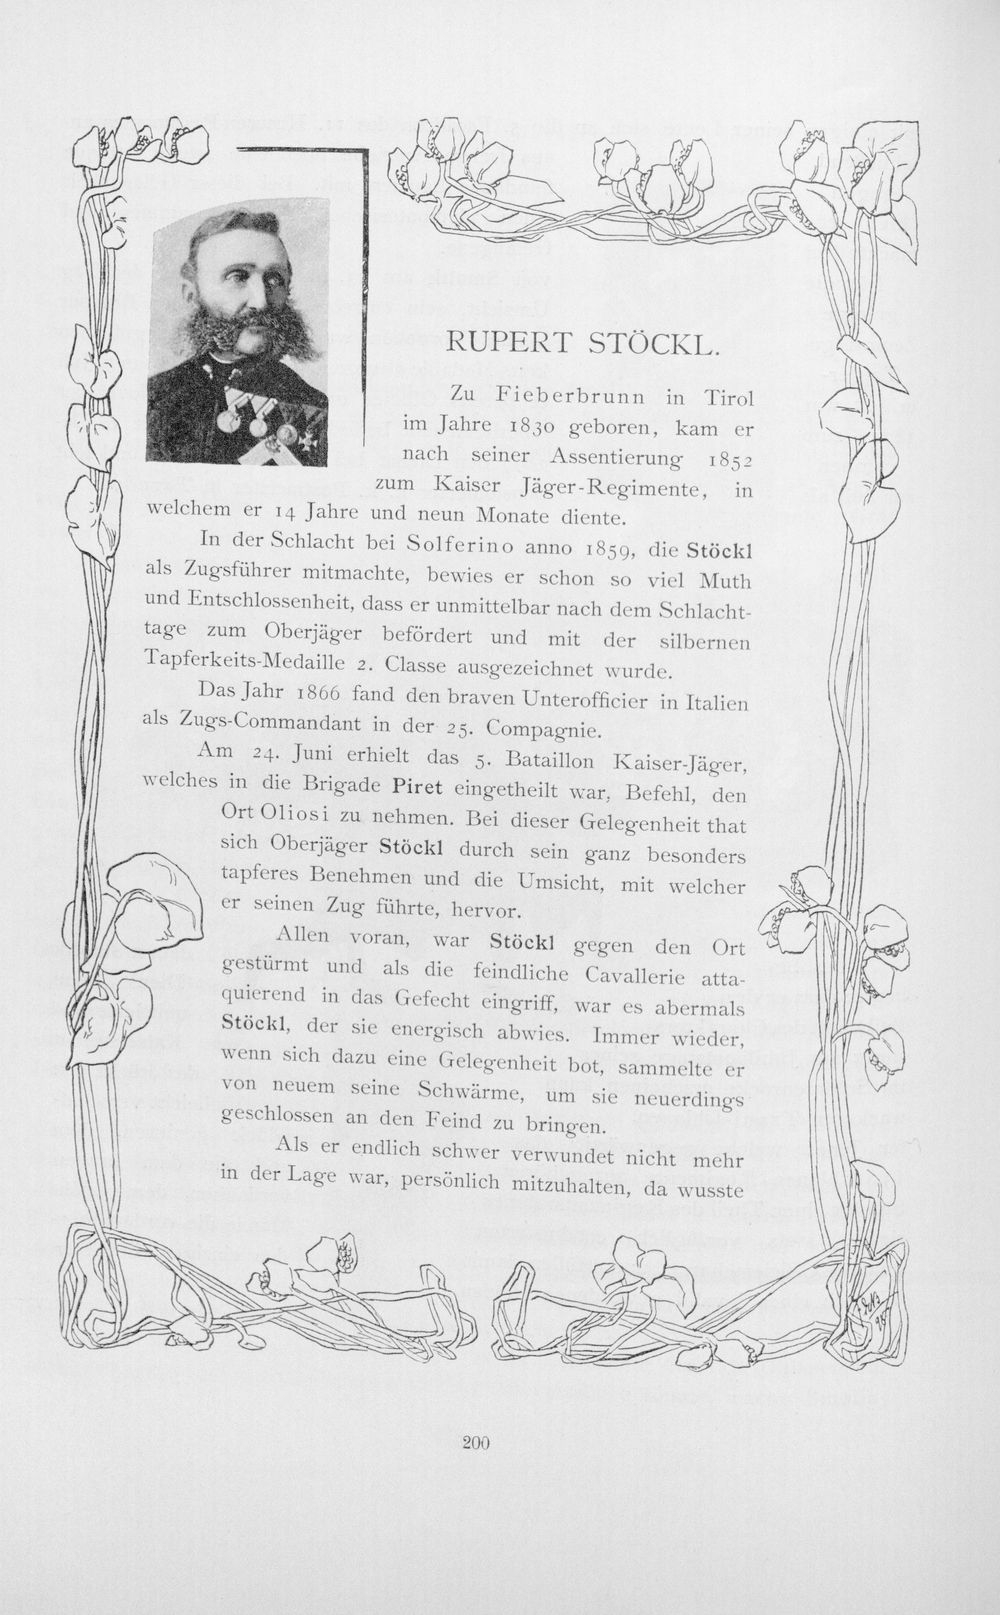 RUPERT STÖCKL.
Zu Fieberbrunn in Tirol
im Jahre 1830 geboren, kam er
nach seiner Assentierung 1852
zum Kaiser Jäger-Regimente, in
welchem er 14 Jahre und neun Monate diente.
In der Schlacht bei Solferino anno 1859, die Stöckl
als Zugsführer mitmachte, bewies er schon so viel Muth
und Entschlossenheit, dass er unmittelbar nach dem Schlacht-
tage zum Oberjäger befördert und mit der silbernen
Tapferkeits-Medaille 2. Classe ausgezeichnet wurde.
Das Jahr 1866 fand den braven Unterofficier in Italien
als Zugs-Commandant in der 25. Compagnie.
Am 24. Juni erhielt das 5. Bataillon Kaiser-Jäger,
welches in die Brigade Piret eingetheilt war, Befehl, den
Ort Oliosi zu nehmen. Bei dieser Gelegenheit that
sich Oberjäger Stöckl durch sein ganz besonders
tapferes Benehmen und die Umsicht, mit welcher
er seinen Zug führte, hervor.
Allen voran, war Stöckl gegen den Ort
gestürmt und als die feindliche Cavallerie atta-
quierend in das Gefecht eingriff, war es abermals
Stöckl, der sie energisch abwies. Immer wieder,
wenn sich dazu eine Gelegenheit bot, sammelte er
von neuem seine Schwärme, um sie neuerdings
geschlossen an den Feind zu bringen.
Als er endlich schwer verwundet nicht mehr
in der Lage war, persönlich mitzuhalten, da wusste
200